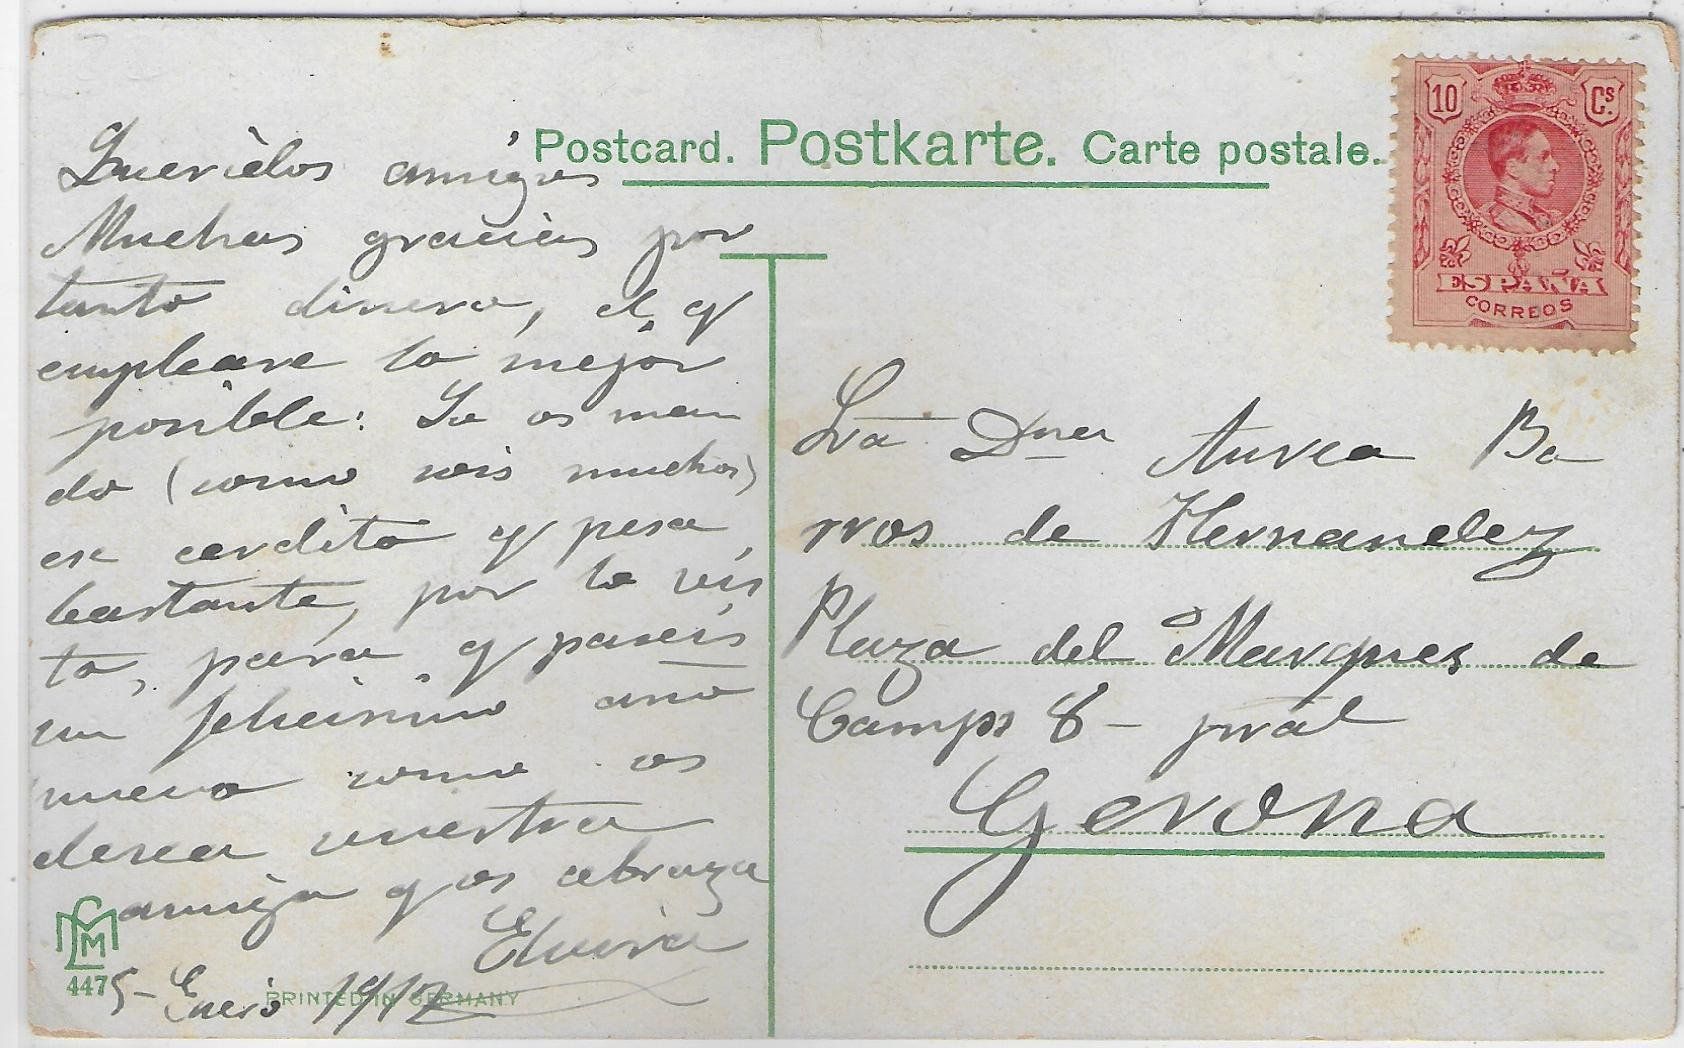 Postcard. Postkarte. Carte postale.
10 Cs.
ESPAÑA
CORREOS
Queridos amigos
Muchas gracias por
tanto dinero, el q
empleare lo mejor
posible: Yo os man
do (como sois muchos)
ese cerdito q pesa
bastante, por lo vis
to, para q paseis
un felicisimo año
nuevo como os
desea vuestra
amiga q os abraza
Elvira
5-Enero 1912
447
PRINTED IN GERMANY
Sra Dña Aurea Ba
rros de Hernandez
Plaza del Marques de
Camps 8 - pral
Gerona